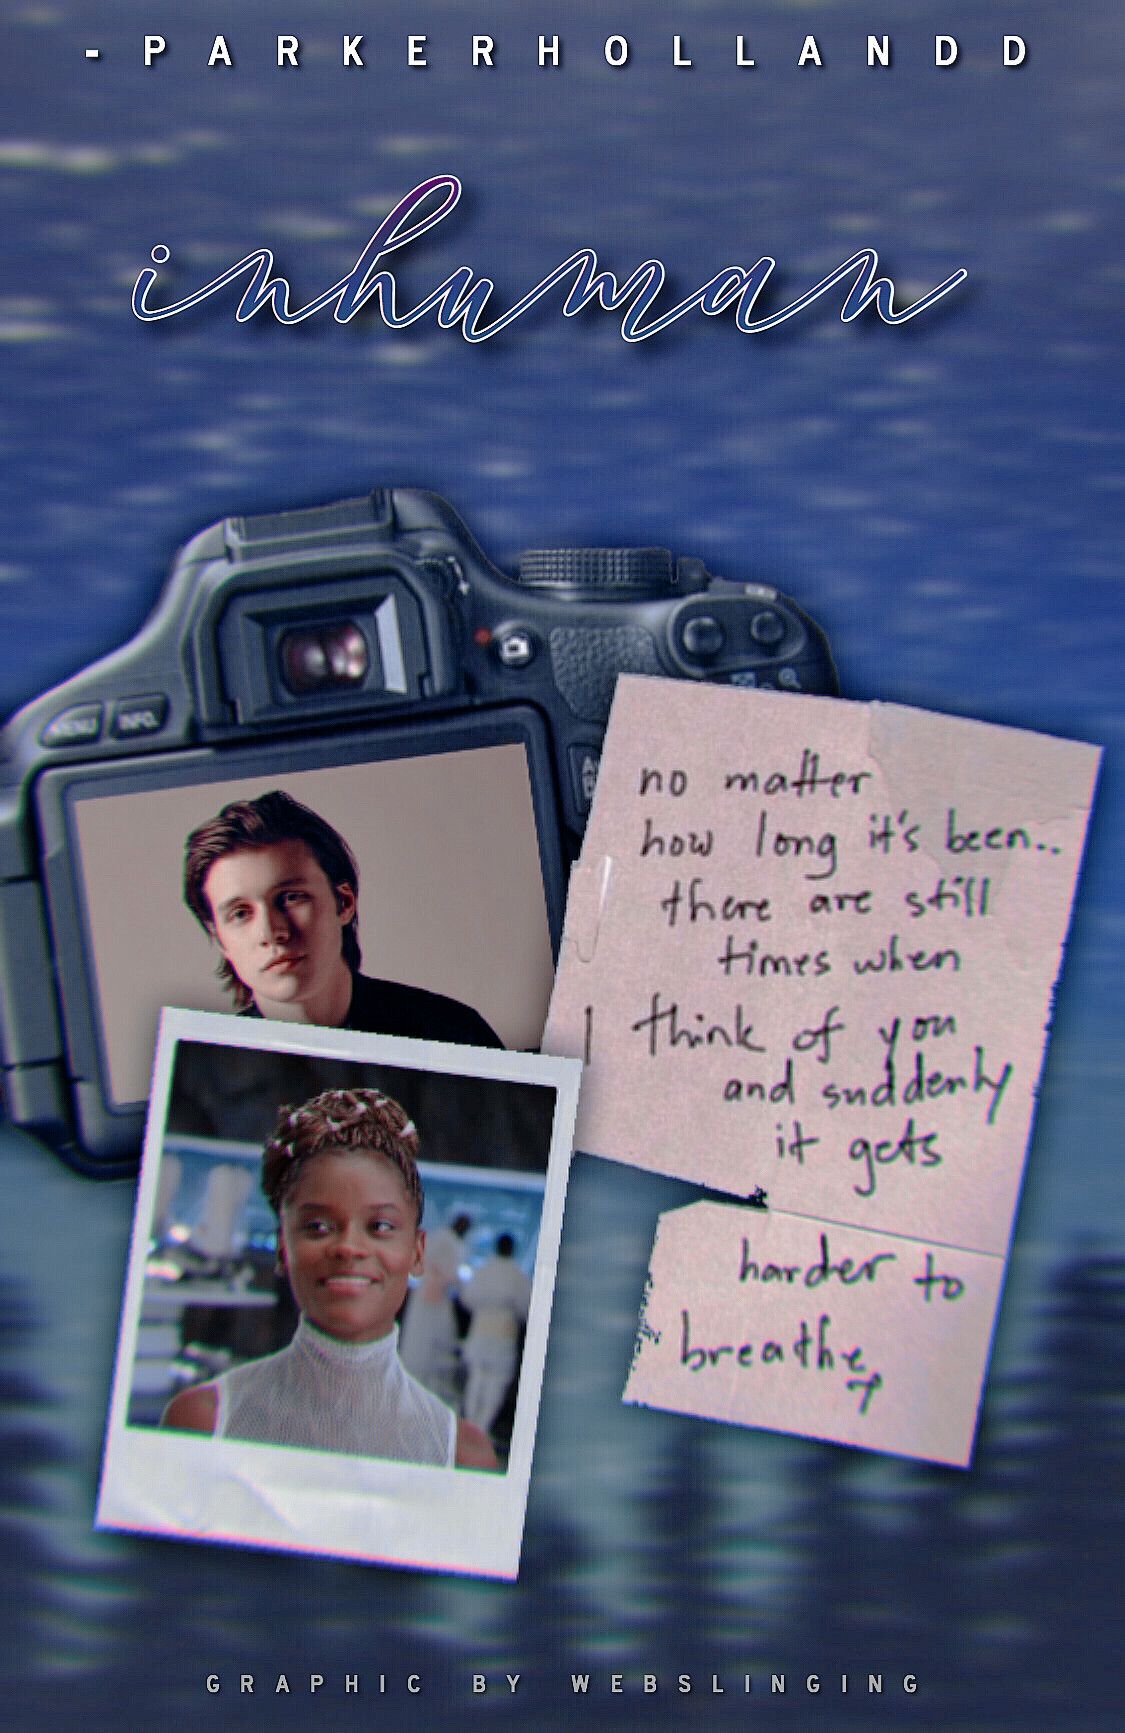 - PARKERHOLLANDD
inhuman
MENU INFO.
no matter
how long it's been..
there are still
times when
I think of you
and suddenly
it gets
harder to
breathe
GRAPHIC BY WEBSLINGING